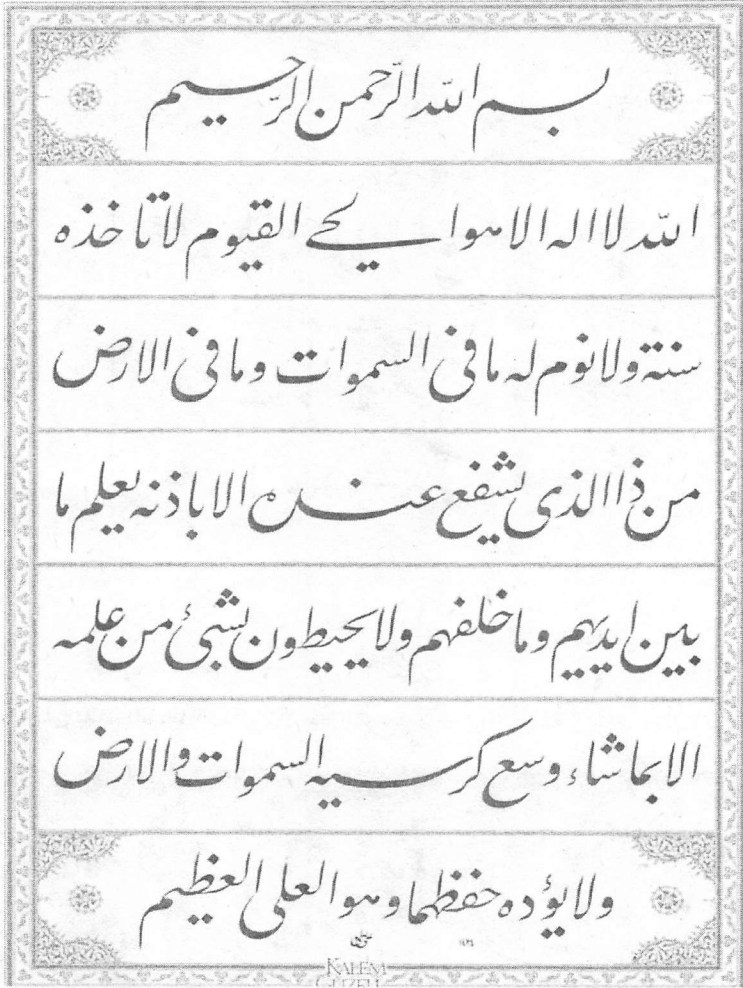 بسم الله الرّحمن الرّحيم
الله لا اله الا هو الحي القيوم لا تاخذه
سنة ولا نوم له ما فى السموات وما فى الارض
من ذا الذى يشفع عنده الا باذنه يعلم ما
بين ايديهم وما خلفهم ولا يحيطون بشئ من علمه
الا بما شاء وسع كرسيه السموات والارض
ولا يؤده حفظهما وهو العلى العظيم
KALEM
GÜZELİ